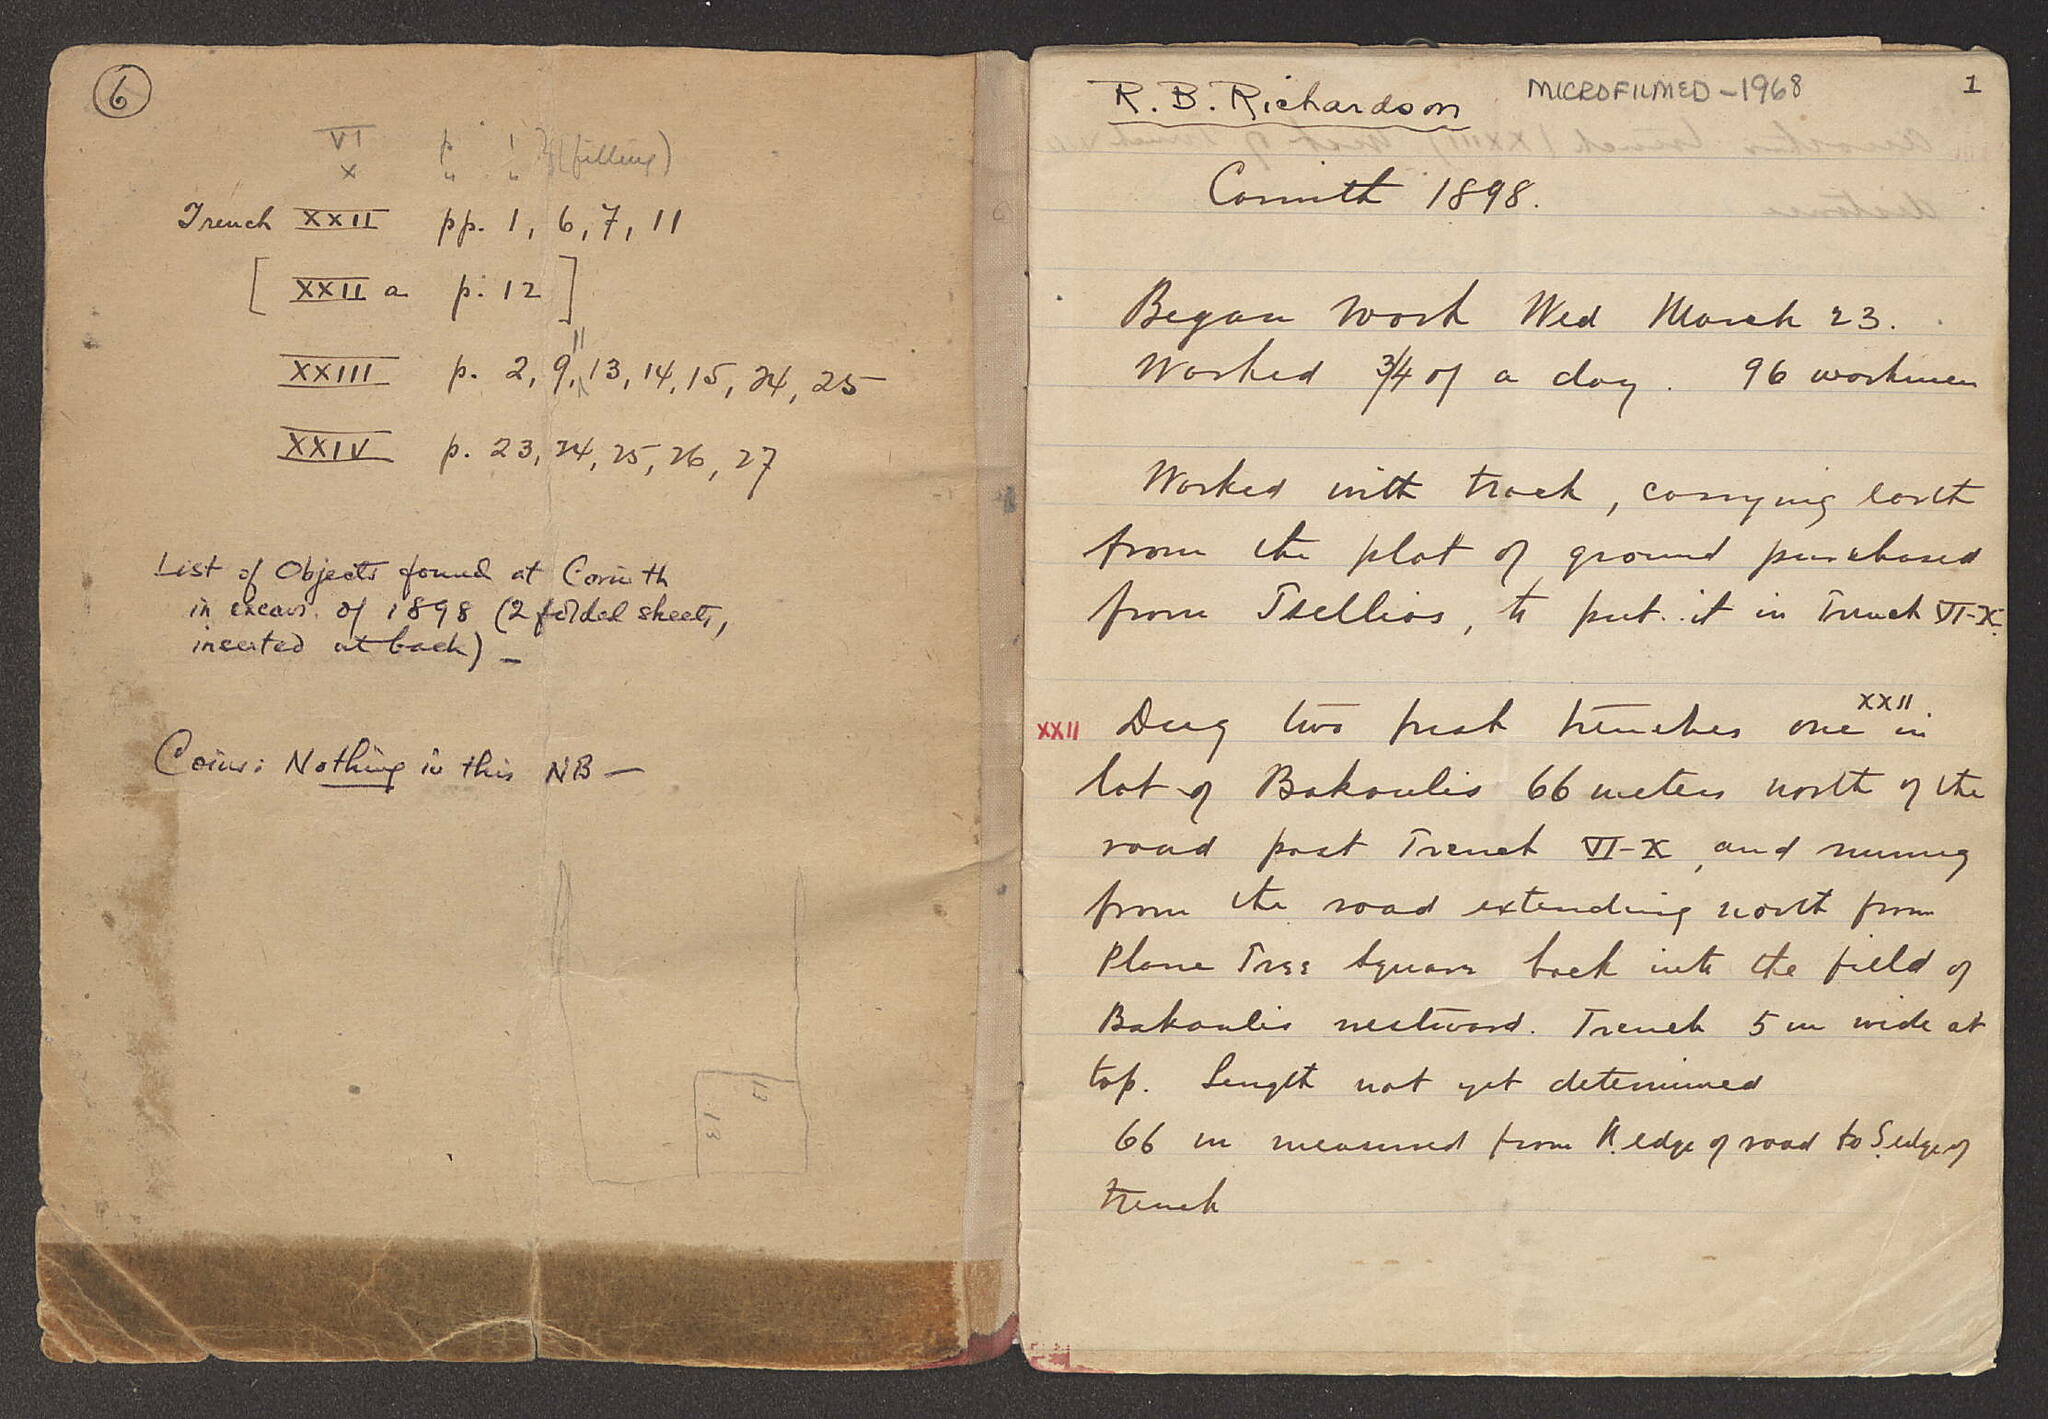 6
VI p 1 } (filling)
X " "
Trench XXII pp. 1, 6, 7, 11
[ XXII a p. 12 ]
XXIII p. 2, 9, 11 13, 14, 15, 24, 25
XXIV p. 23, 24, 25, 26, 27
List of Objects found at Corinth
in excav. of 1898 (2 folded sheets,
inserted at back) –
Coins: Nothing in this NB –
13
13
R. B. Richardson
MICROFILMED – 1968
1
Corinth 1898.
Began work Wed March 23.
Worked 3/4 of a day. 96 workmen
Worked with track, carrying earth
from the plot of ground purchased
from Tsellios, to put it in Trench VI-X.
XXII
XXII Dug two fresh trenches one in
lot of Bakoulis 66 meters north of the
road past Trench VI-X, and running
from the road extending north from
Plane Tree Square back into the field of
Bakoulis westward. Trench 5 m wide at
top. Length not yet determined
66 m measured from N. edge of road to S. edge of
trench